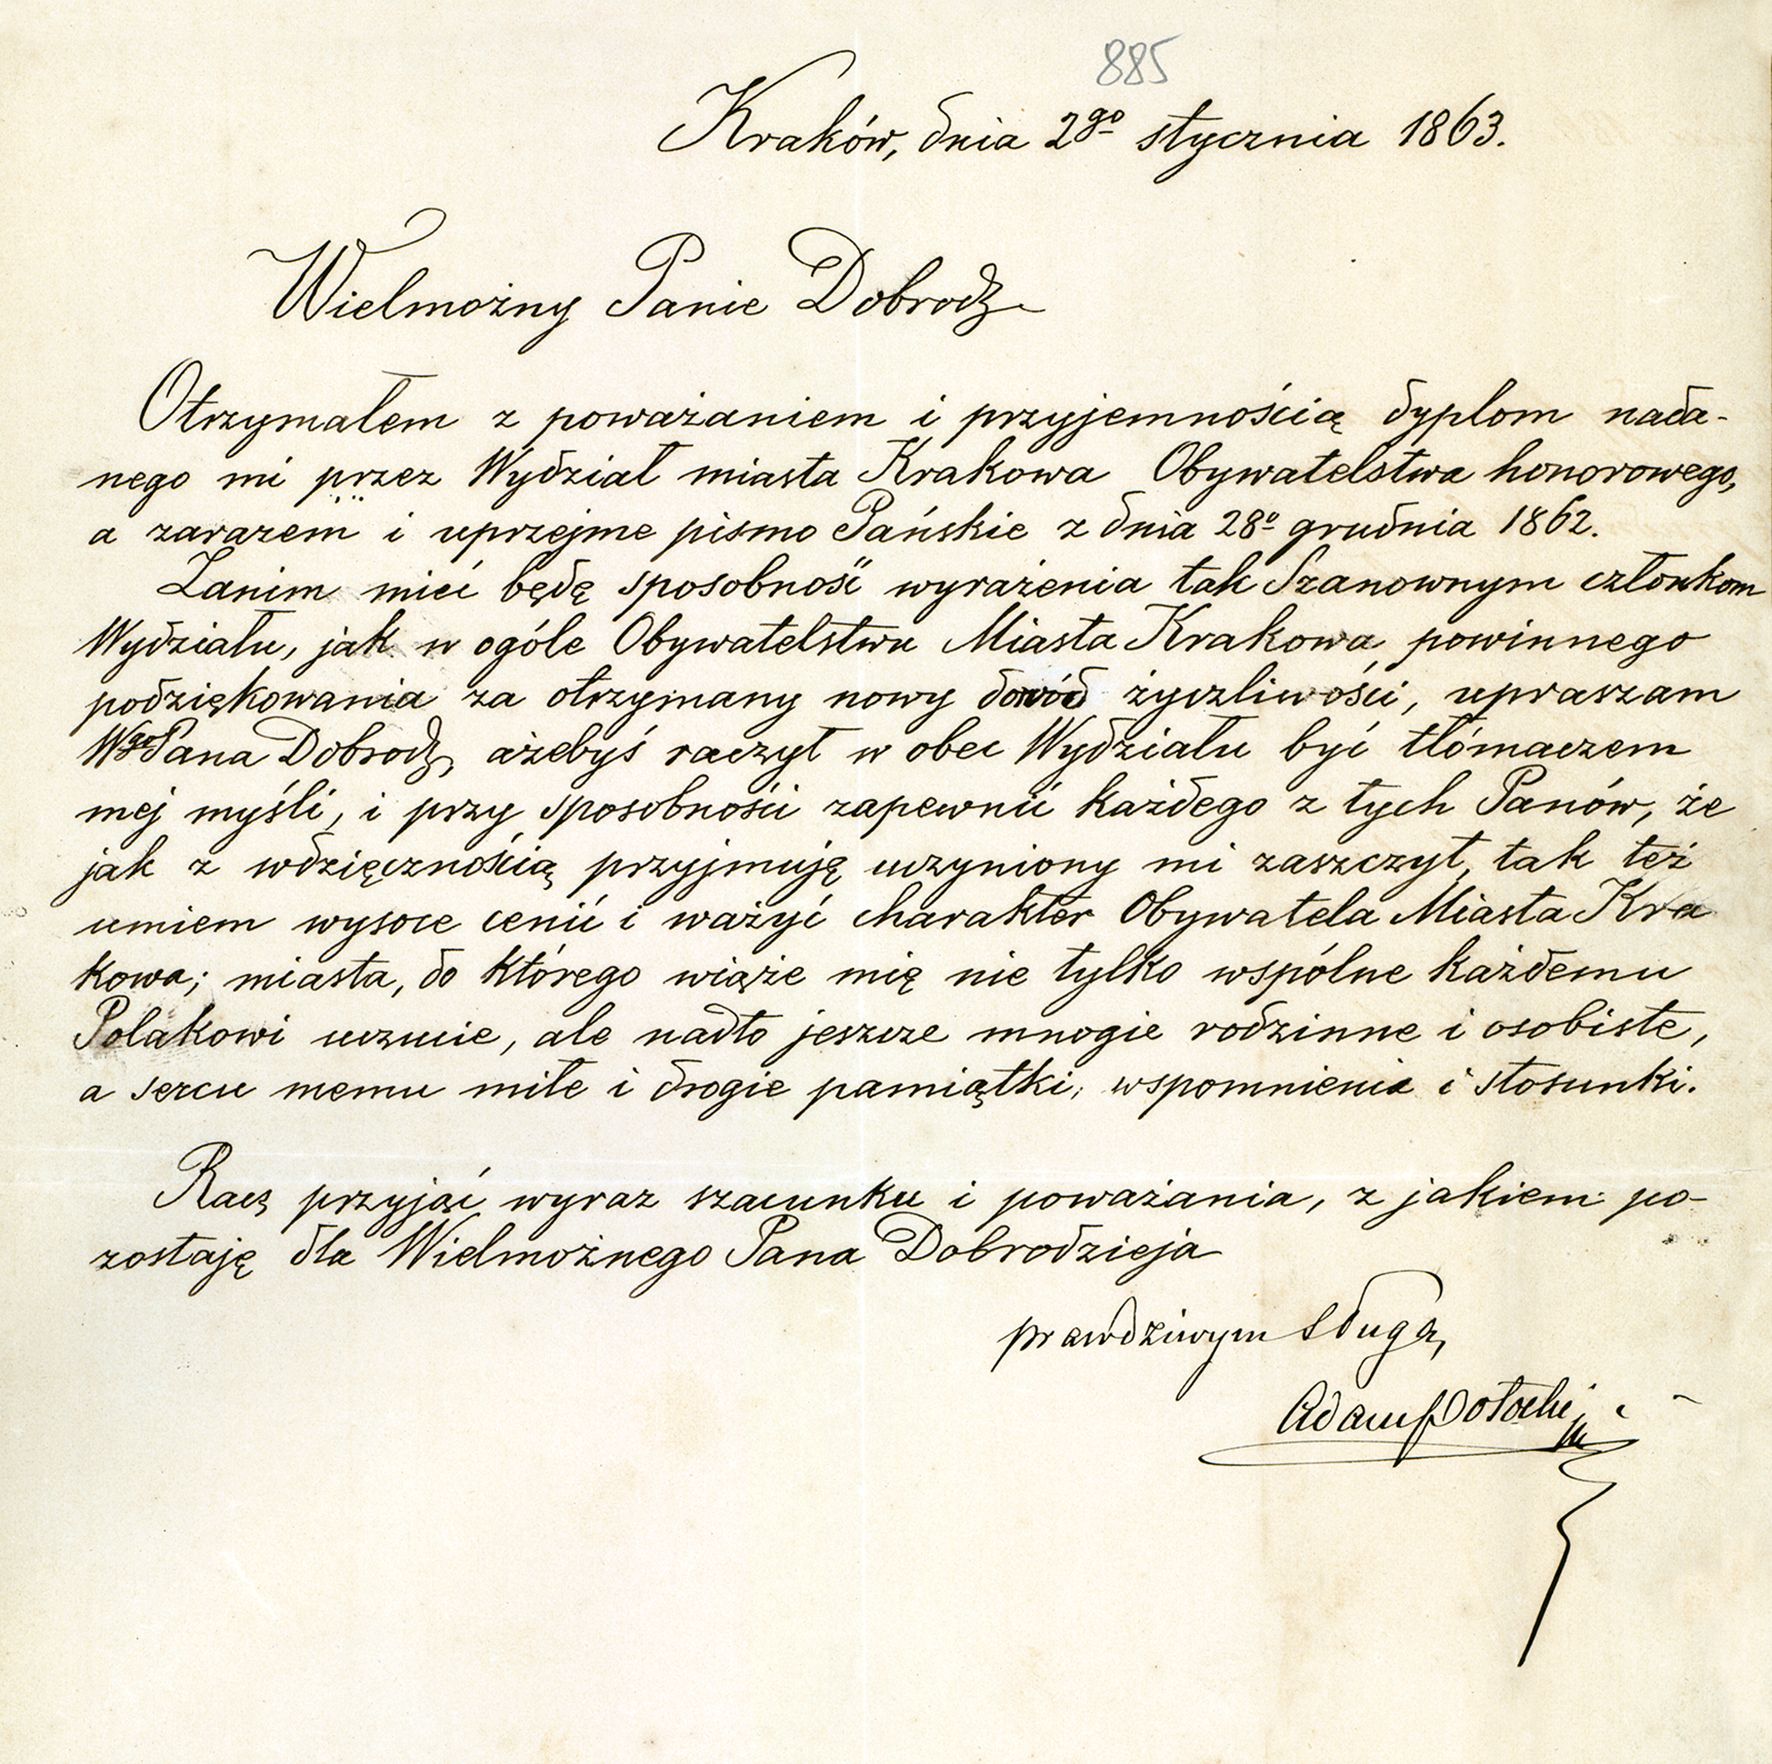 885
Kraków, dnia 2go stycznia 1863.
Wielmożny Panie Dobrodz
Otrzymałem z poważaniem i przyjemnością dyplom nada-
nego mi przez Wydział miasta Krakowa Obywatelstwa honorowego,
a zarazem i uprzejme pismo Pańskie z dnia 28o grudnia 1862.
Zanim mieć będę sposobność wyrażenia tak Szanownym członkom
Wydziału, jak w ogóle Obywatelstwu Miasta Krakowa powinnego
podziękowania za otrzymany nowy dowód życzliwości, upraszam
WgoPana Dobrodz, ażebyś raczył w obec Wydziału być tłómaczem
mej myśli, i przy sposobności zapewnić każdego z tych Panów, że
jak z wdzięcznością przyjmuję uczyniony mi zaszczyt, tak też
umiem wysoce cenić i ważyć charakter Obywatela Miasta Kra
kowa; miasta, do którego wiąże mię nie tylko wspólne każdemu
Polakowi uczucie, ale nadto jeszcze mnogie rodzinne i osobiste,
a sercu memu miłe i drogie pamiątki, wspomnienia i stosunki.
Racz przyjąć wyraz szacunku i poważania, z jakiem po-
zostaję dla Wielmożnego Pana Dobrodzieja
prawdziwym sługą,
Adam Potocki